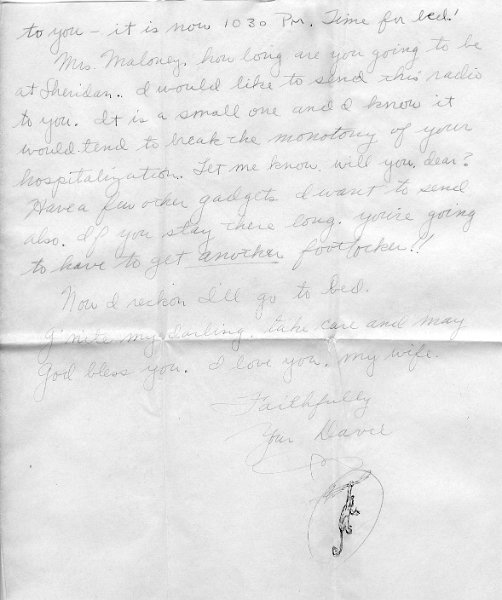 to you - it is now 10 30 PM. Time for bed!
Mrs. Maloney, how long are you going to be
at Sheridan. I would like to send this radio
to you. It is a small one and I know it
would tend to break the monotony of your
hospitalization. Let me know, will you, dear?
Have a few other gadgets I want to send
also. If you stay there long, you're going
to have to get another footlocker!!
Now I reckon I'll go to bed.
G'nite my darling, take care and may
God bless you. I love you, my wife.
Faithfully
Your Dave